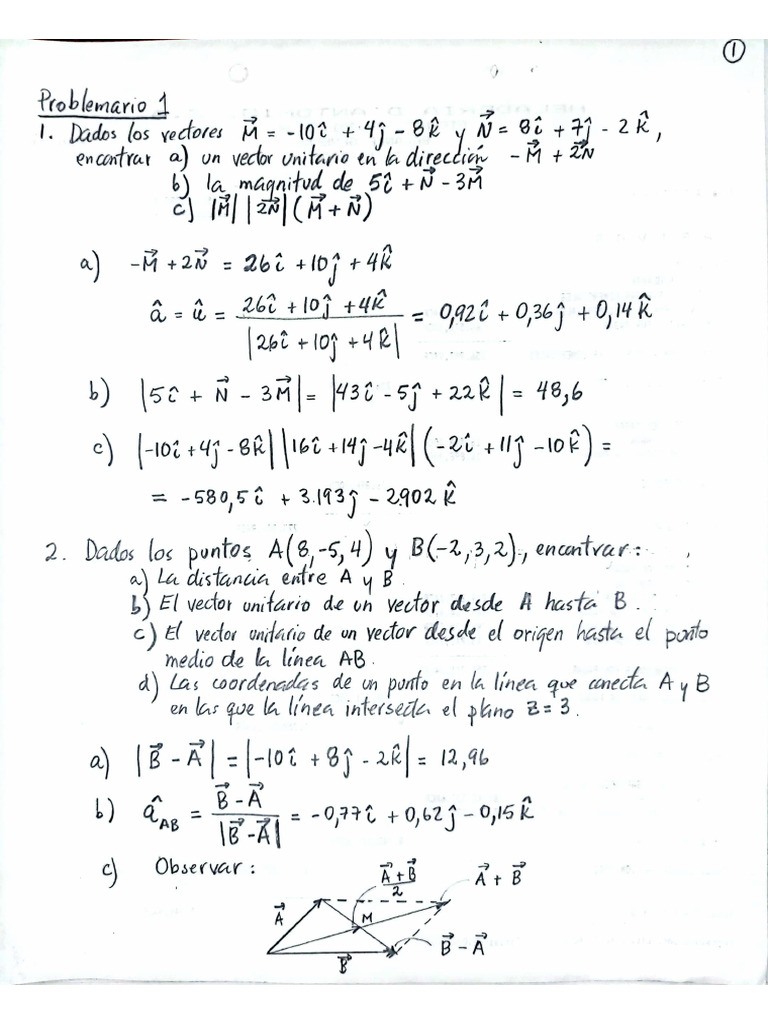 ①
Problemario 1
1. Dados los vectores M⃗ = -10î + 4ĵ - 8k̂ y N⃗ = 8î + 7ĵ - 2k̂,
encontrar a) un vector unitario en la dirección -M⃗ + 2N⃗
b) la magnitud de 5î + N⃗ - 3M⃗
c) |M⃗| |2N⃗| (M⃗ + N⃗)
a) -M⃗ + 2N⃗ = 26î + 10ĵ + 4k̂
â = û = (26î + 10ĵ + 4k̂) / |26î + 10ĵ + 4k̂| = 0,92î + 0,36ĵ + 0,14k̂
b) |5î + N⃗ - 3M⃗| = |43î - 5ĵ + 22k̂| = 48,6
c) |-10î + 4ĵ - 8k̂| |16î + 14ĵ - 4k̂| (-2î + 11ĵ - 10k̂) =
= -580,5î + 3.193ĵ - 2.902k̂
2. Dados los puntos A(8,-5,4) y B(-2,3,2), encontrar:
a) La distancia entre A y B.
b) El vector unitario de un vector desde A hasta B.
c) El vector unitario de un vector desde el origen hasta el punto
medio de la línea AB.
d) Las coordenadas de un punto en la línea que conecta A y B
en las que la línea intersecta el plano z=3.
a) |B⃗ - A⃗| = |-10î + 8ĵ - 2k̂| = 12,96
b) â_AB = (B⃗ - A⃗) / |B⃗ - A⃗| = -0,77î + 0,62ĵ - 0,15k̂
c) Observar:
(A⃗ + B⃗) / 2
A⃗ + B⃗
A⃗
M
B⃗ - A⃗
B⃗